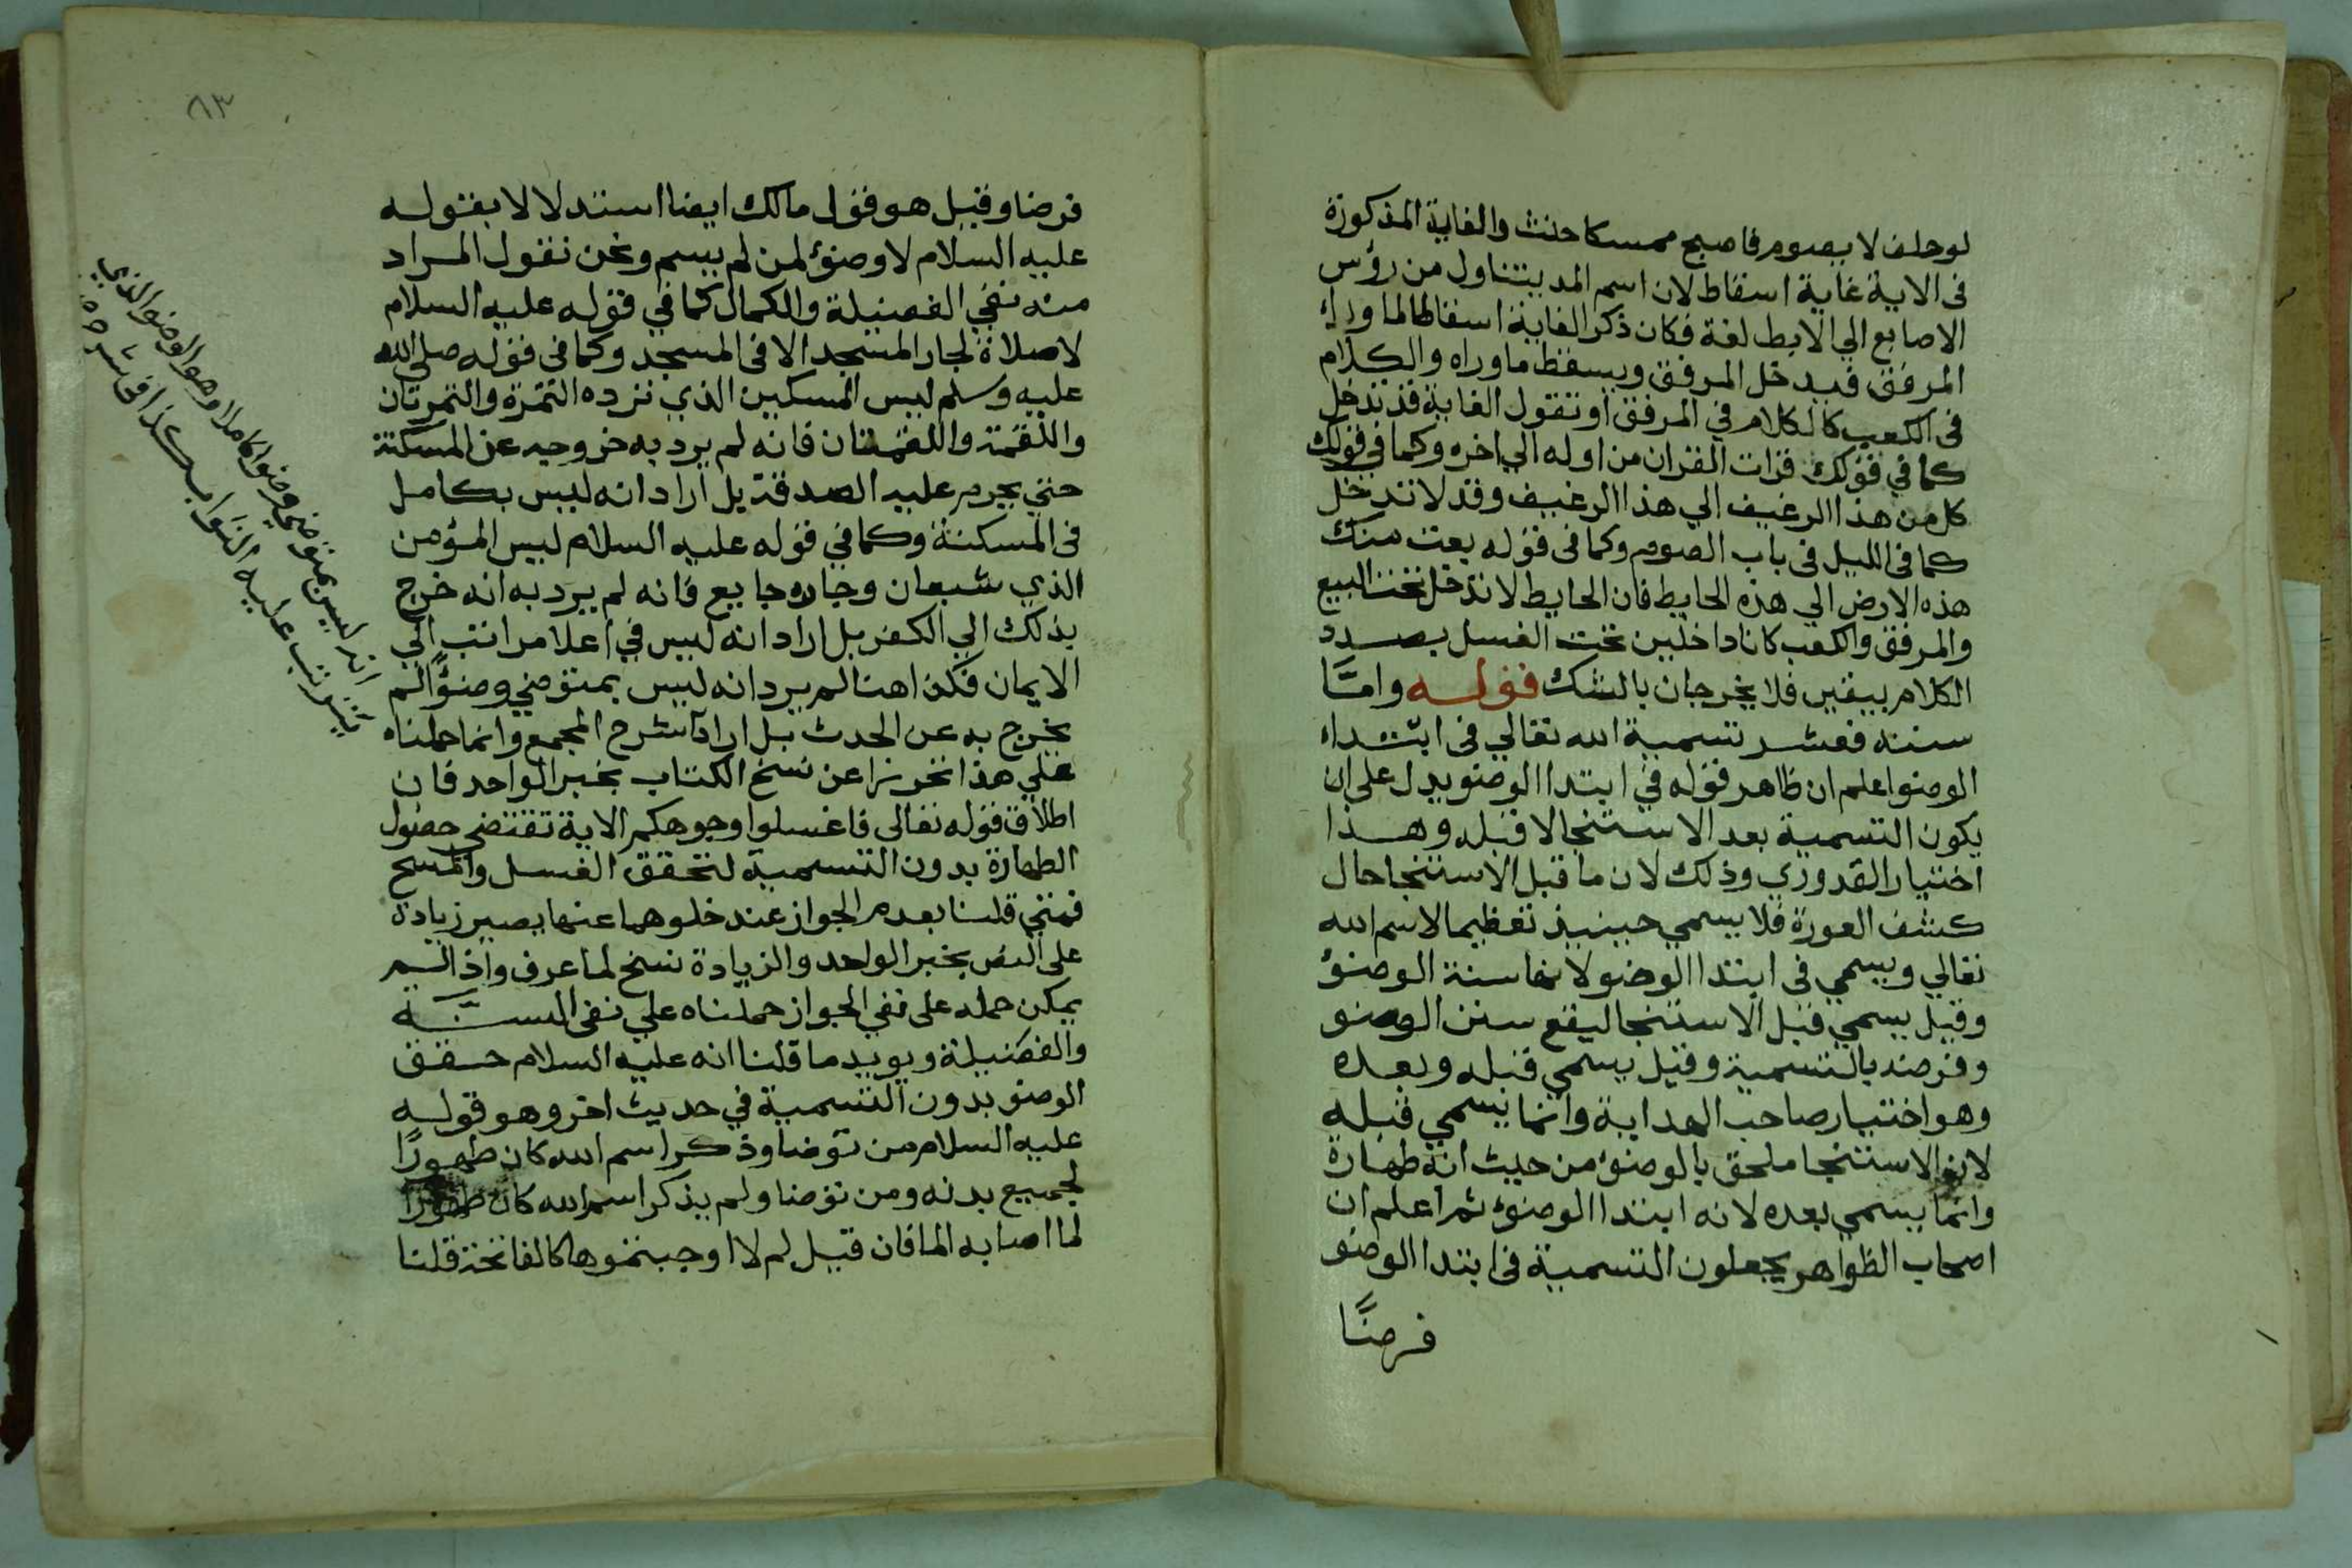 لو حلف لا يصوم فاصبح ممسكا حنث والغاية المذكورة
فى الاية غاية اسقاط لان اسم اليد يتناول من رؤس
الاصابع الي الابط لغة فكان ذكر الغاية اسقاطا لما وراء
المرفق فيدخل المرفق ويسقط ما وراه والكلام
فى الكعب كالكلام في المرفق او نقول الغاية قد تدخل
كما في قولك قرات القران من اوله الي اخره وكما في قولك
كل من هذا الرغيف الي هذا الرغيف وقد لا تدخل
كما فى الليل فى باب الصوم وكما فى قوله بعت منك
هذه الارض الي هذه الحايط فان الحايط لا تدخل تحت البيع
والمرفق والكعب كانا داخلين تحت الغسل بصدد
الكلام بيقين فلا يخرجان بالشك قوله وامّا
سننه فعشر تسمية الله تعالي فى ابتداء
الوضوا علم ان ظاهر قوله في ابتدا الوضو يدل على ان
يكون التسمية بعد الاستنجا لا قبله وهذا
اختيار القدوري وذلك لان ما قبل الاستنجا حال
كشف العورة فلا يسمي حينيذ تعظيما لاسم الله
تعالي ويسمي فى ابتدا الوضو لانها سنة الوضوء
وقيل يسمي قبل الاستنجا ليقع سنن الوضو
وفرضه بالتسمية وقيل يسمي قبله وبعده
وهو اختيار صاحب الهداية وانما يسمي قبله
لان الاستنجا ملحق بالوضوء من حيث انه طهارة
وانما يسمي بعده لانه ابتدا الوضوء ثم اعلم ان
اصحاب الظواهر يجعلون التسمية فى ابتدا الوضو
فرضًا
٨٣
فرضا وقيل هو قول مالك ايضا استدلالا بقوله
عليه السلام لا وضوء لمن لم يسم ونحن نقول المراد
منه نفي الفضيلة والكمال كما في قوله عليه السلام
لا صلاة لجار المسجد الا فى المسجد وكما فى قوله صلي الله
عليه وسلم ليس المسكين الذي ترده التمرة والتمرتان
واللقمة واللقمتان فانه لم يرد به خروجه عن المسكنة
حتي يحرم عليه الصدقة بل اراد انه ليس بكامل
فى المسكنة وكما في قوله عليه السلام ليس المؤمن
الذي شبعان وجاره جايع فانه لم يرد به انه خرج
بذلك الي الكفر بل اراد انه ليس في اعلا مراتب الي
الايمان فكذا هنا لم يرد انه ليس بمتوضي وضوءًا لم
يخرج به عن الحدث بل اراد شرح المجمع وانما حملناه
علي هذا تحرزا عن نسخ الكتاب بخبر الواحد فان
اطلاق قوله تعالى فاغسلوا وجوهكم الاية تقتضى حصول
الطهارة بدون التسمية لتحقق الغسل والمسح
فمتي قلنا بعدم الجواز عند خلوهما عنها يصير زيادة
على النص بخبر الواحد والزيادة نسخ لما عرف واذا لم
يمكن حمله على نفي الجواز حملناه علي نفى السنّة
والفضيلة ويويد ما قلنا انه عليه السلام حقق
الوضو بدون التسمية في حديث اخر وهو قوله
عليه السلام من توضا وذكر اسم الله كان طهورًا
لجميع بدنه ومن توضا ولم يذكر اسم الله كان طهورًا
لما اصابه الما فان قيل لم لا اوجبتموها كالفاتحة قلنا
انه ليس بمتوضي وضوا كاملا وهو الوضو الذي
يترتب عليه الثواب كذا في